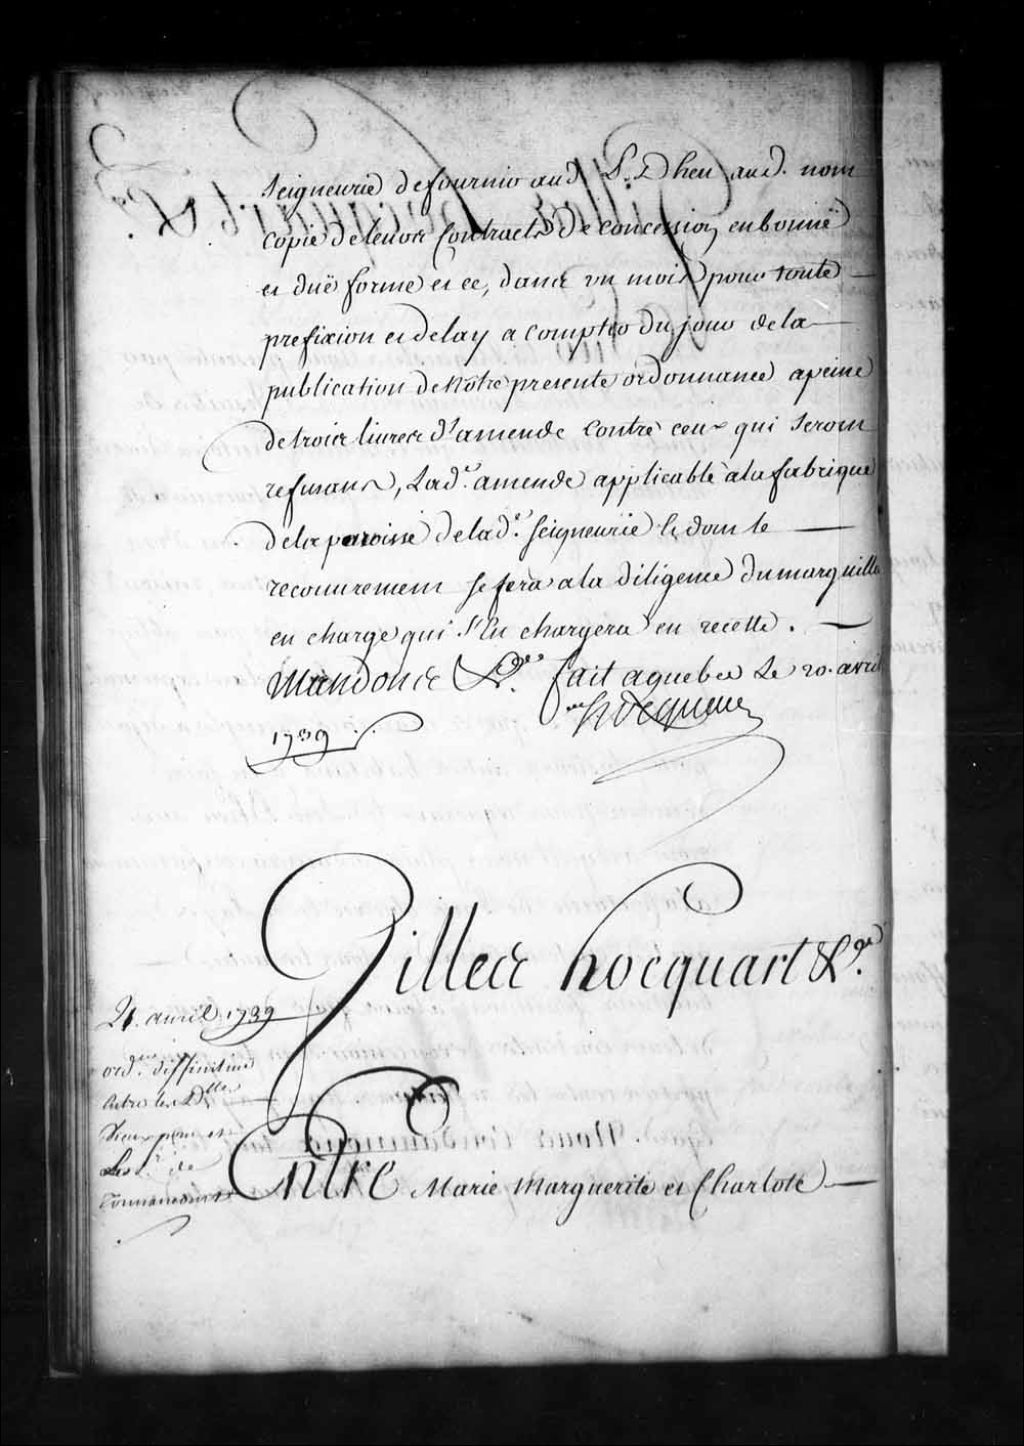 seigneurie de fournir aud. S. Dheu aud. nom
copie de leurs Contracts de concession en bonne
et duë forme et ce, dans un mois pour toute
prefixion et delay a compter du jour de la
publication de notre presente ordonnance a peine
de trois livres d'amende contre ceux qui seront
refusans, Lad.e amende applicable a la fabrique
de la paroisse de lad.e seigneurie & dont le
recouvrement se fera a la diligence du marguillier
en charge qui s'En chargera en recette.
Mandons &c. fait a quebec Le 20. avril
1739. hocquart
Gilles hocquart &c.
21. avril 1739
ord.ce diffinitive
Entre les D.lles
et
Les S.rs de
Tonnancourt
Entre Marie Marguerite et Charlote